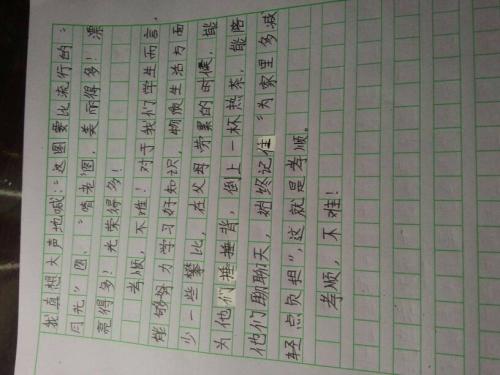 我真想大声地喊:“这圈要比流行的:
月光”圈,“啃老”圈,美丽得多!漂
亮得多!光荣得多!
孝顺,不难!对于我们学生而言
能够努力学习好知识,物质生活方面
少一些攀比,在父母劳累的时候,能
为他们捶捶背,倒上一杯热茶,能陪
他们聊聊天,始终记住“为家里多减
轻点负担”,这就是孝顺。
孝顺,不难!